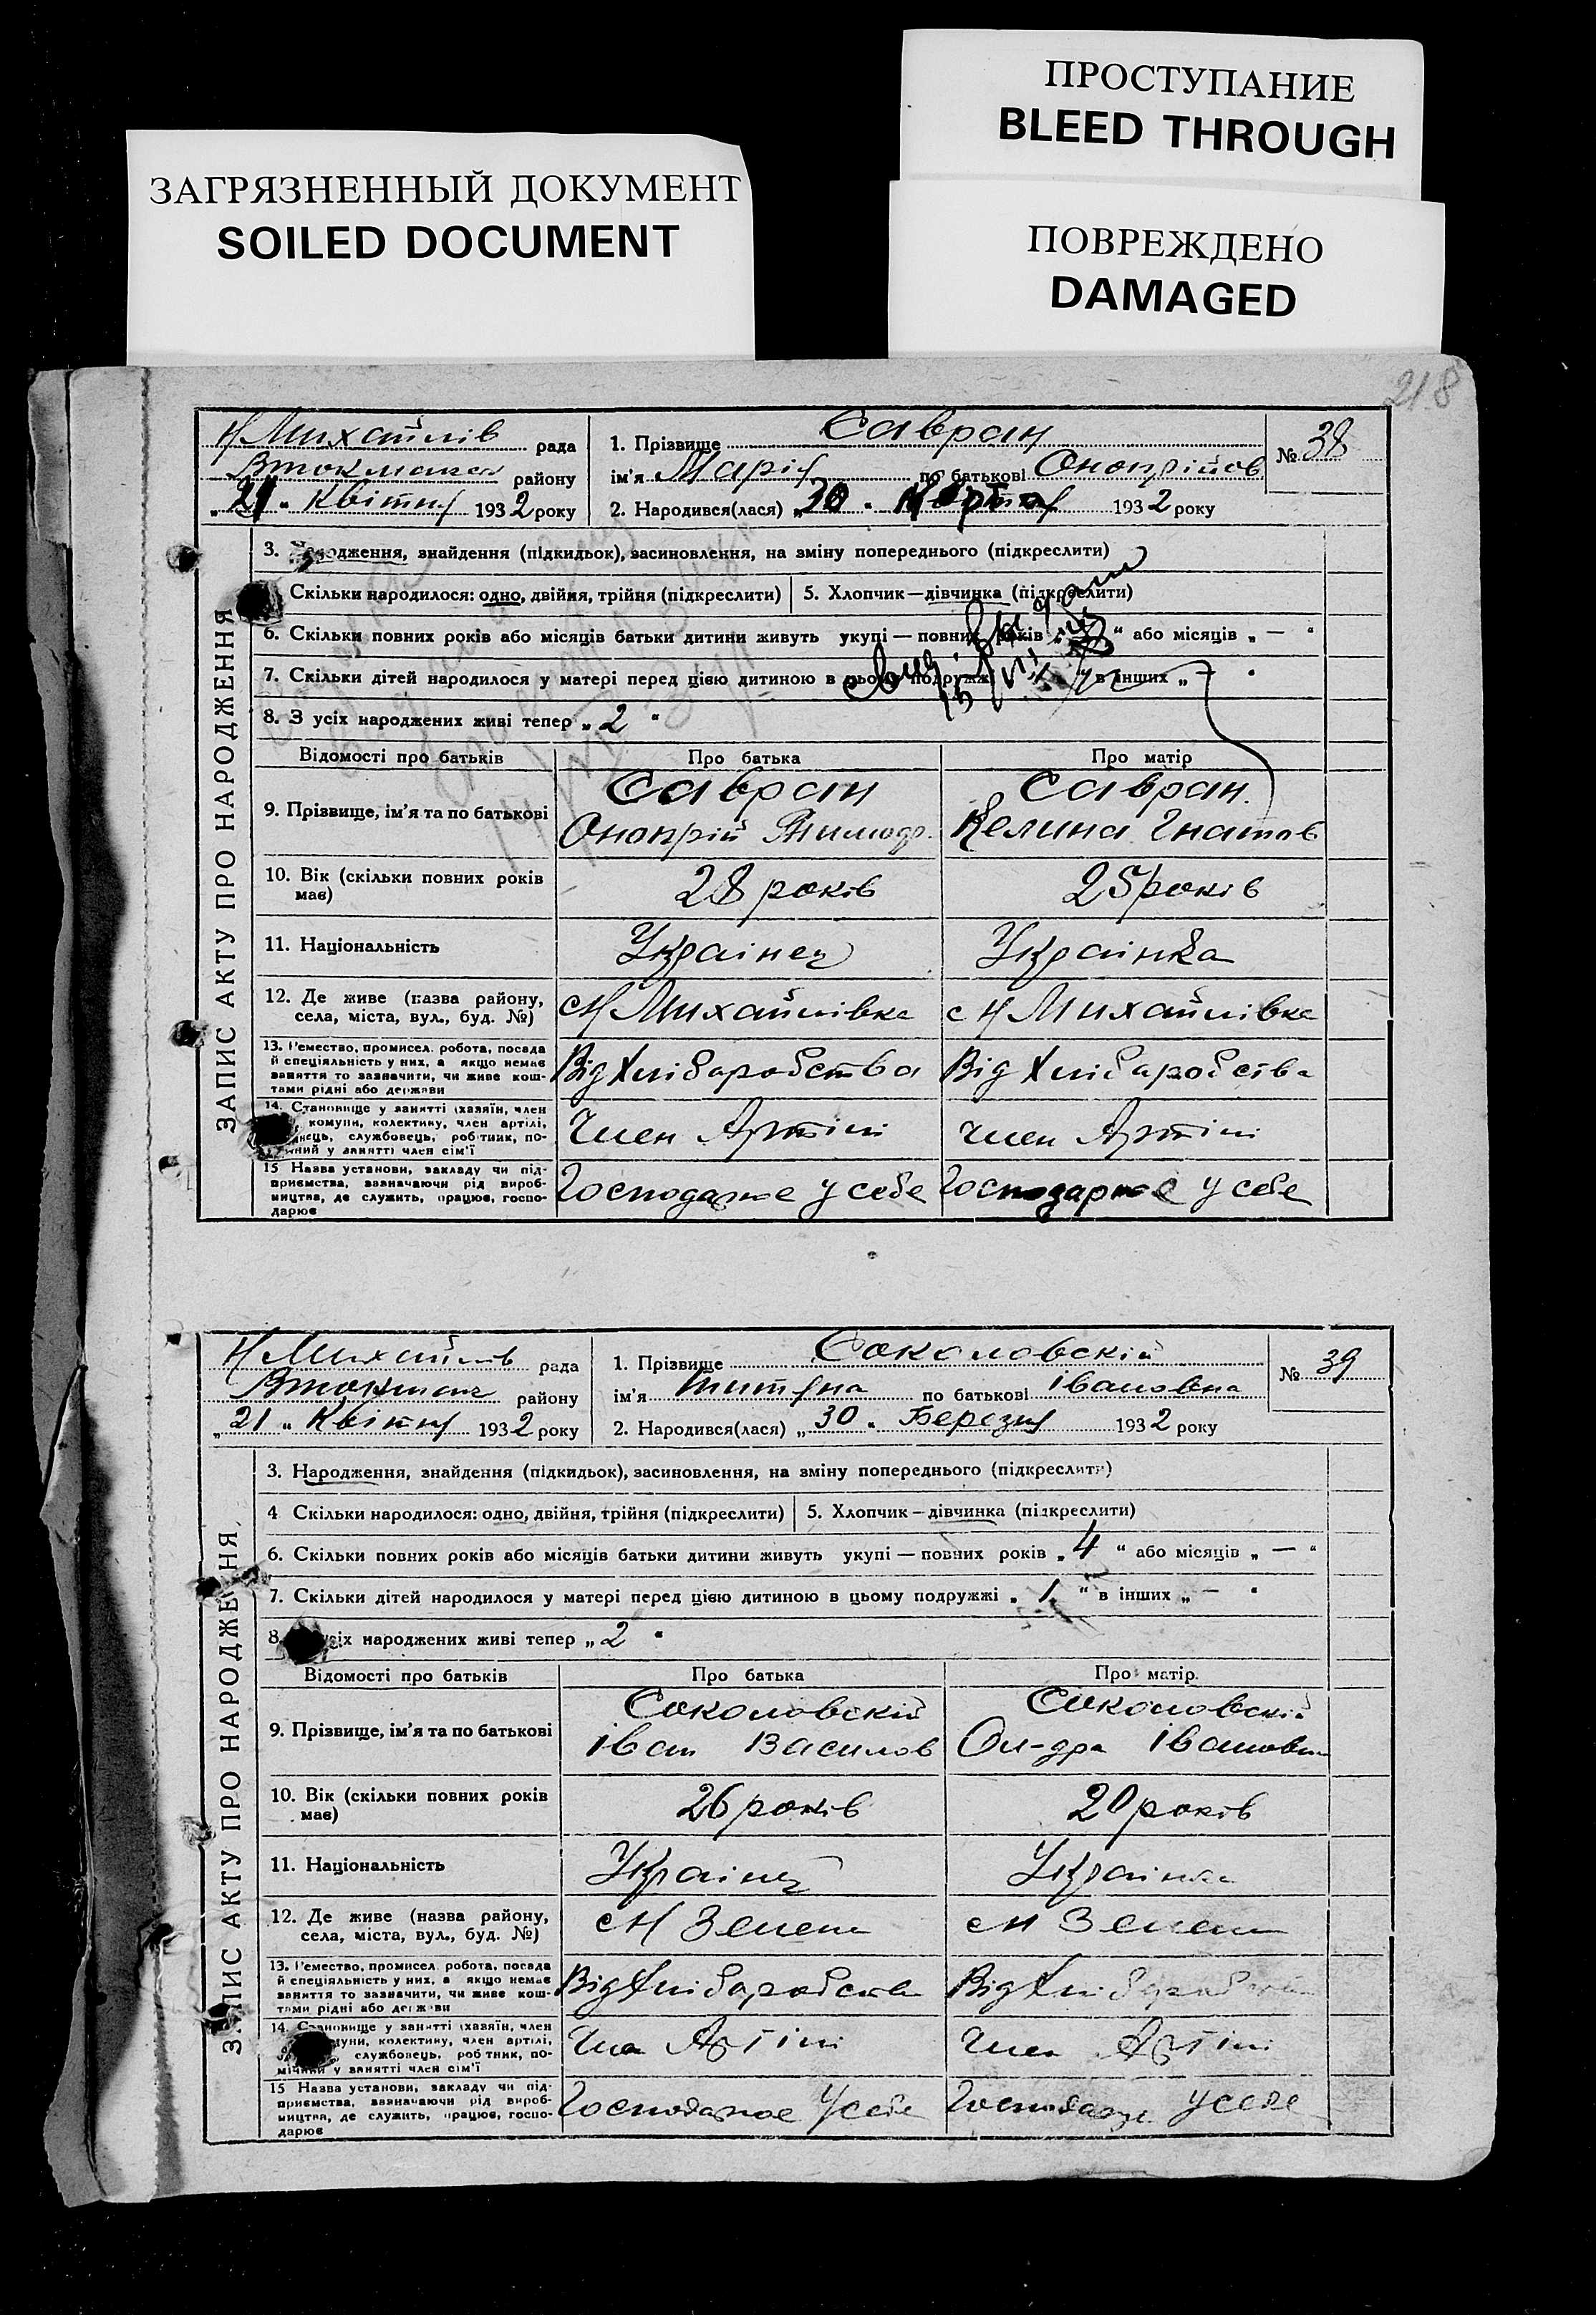 ПРОСТУПАНИЕ
BLEED THROUGH
ЗАГРЯЗНЕННЫЙ ДОКУМЕНТ
SOILED DOCUMENT
ПОВРЕЖДЕНО
DAMAGED
218
ЗАПИС АКТУ ПРО НАРОДЖЕННЯ
Н Михайлів рада
району
"21" Квітня 1932 року
1. Прізвище Савран
ім'я Марія по батькові Онопрійов
2. Народився(лася) "30" 1932 року
№ 38
3. Народження, знайдення (підкидьок), засиновлення, на зміну попереднього (підкреслити)
Скільки народилося: одно, двійня, трійня (підкреслити)
5. Хлопчик—дівчинка (підкреслити)
6. Скільки повних років або місяців батьки дитини живуть укупі — повних років " або місяців „ — "
7. Скільки дітей народилося у матері перед цією дитиною в цьому подружжі " в інших „ — "
8. З усіх народжених живі тепер „ 2 "
Відомості про батьків
Про батька
Про матір
9. Прізвище, ім'я та по батькові
Савран
Онопрій
Савран
Келина Гнатов
10. Вік (скільки повних років має)
28 років
25 років
11. Національність
Українец
Українка
12. Де живе (назва району, села, міста, вул., буд. №)
с Н Михайлівка
с Н Михайлівка
13. Ремество, промисел, робота, посада
й спеціяльність у них, а якщо немає
заняття то зазначити, чи живе кош-
тами рідні або держави
Від Хлібаробства
Від Хлібаробства
14. Становище у занятті (хазяїн, член
комуни, колективу, член артілі,
службовець, робітник, по-
у занятті член сім'ї
Член Артіли
член Артіли
15 Назва установи, закладу чи під-
приємства, зазначаючи рід вироб-
ництва, де служить, працює, госпо-
дарює
Господарюе у себе
Господарюе у себе
ЗАПИС АКТУ ПРО НАРОДЖЕННЯ
Н Михайлів рада
району
"21" Квітня 1932 року
1. Прізвище Соколовскій
ім'я по батькові Івановна
2. Народився(лася) „30" Березня 1932 року
№ 39
3. Народження, знайдення (підкидьок), засиновлення, на зміну попереднього (підкреслити)
4 Скільки народилося: одно, двійня, трійня (підкреслити)
5. Хлопчик—дівчинка (підкреслити)
6. Скільки повних років або місяців батьки дитини живуть укупі — повних років „ 4 " або місяців „ — "
7. Скільки дітей народилося у матері перед цією дитиною в цьому подружжі „ 1. " в інших „ — "
8. усіх народжених живі тепер „ 2 "
Відомості про батьків
Про батька
Про матір
9. Прізвище, ім'я та по батькові
Соколовскій
Іван Василов
Соколовскій
Ол-дра Івановна
10. Вік (скільки повних років має)
26 років
20 років
11. Національність
Українец
Українка
12. Де живе (назва району, села, міста, вул., буд. №)
с Н Зелена
с Н Зелена
13. Ремество, промисел, робота, посада
й спеціяльність у них, а якщо немає
заняття то зазначити, чи живе кош-
тами рідні або держави
Від Хлібаробства
Від Хлібаробства
14. Становище у занятті (хазяїн, член
комуни, колективу, член артілі,
службовець, робітник, по-
мічний у занятті член сім'ї
Артіли
Член Артіли
15 Назва установи, закладу чи під-
приємства, зазначаючи рід вироб-
ництва, де служить, працює, госпо-
дарює
Господарюе у себе
Господарюе у себе